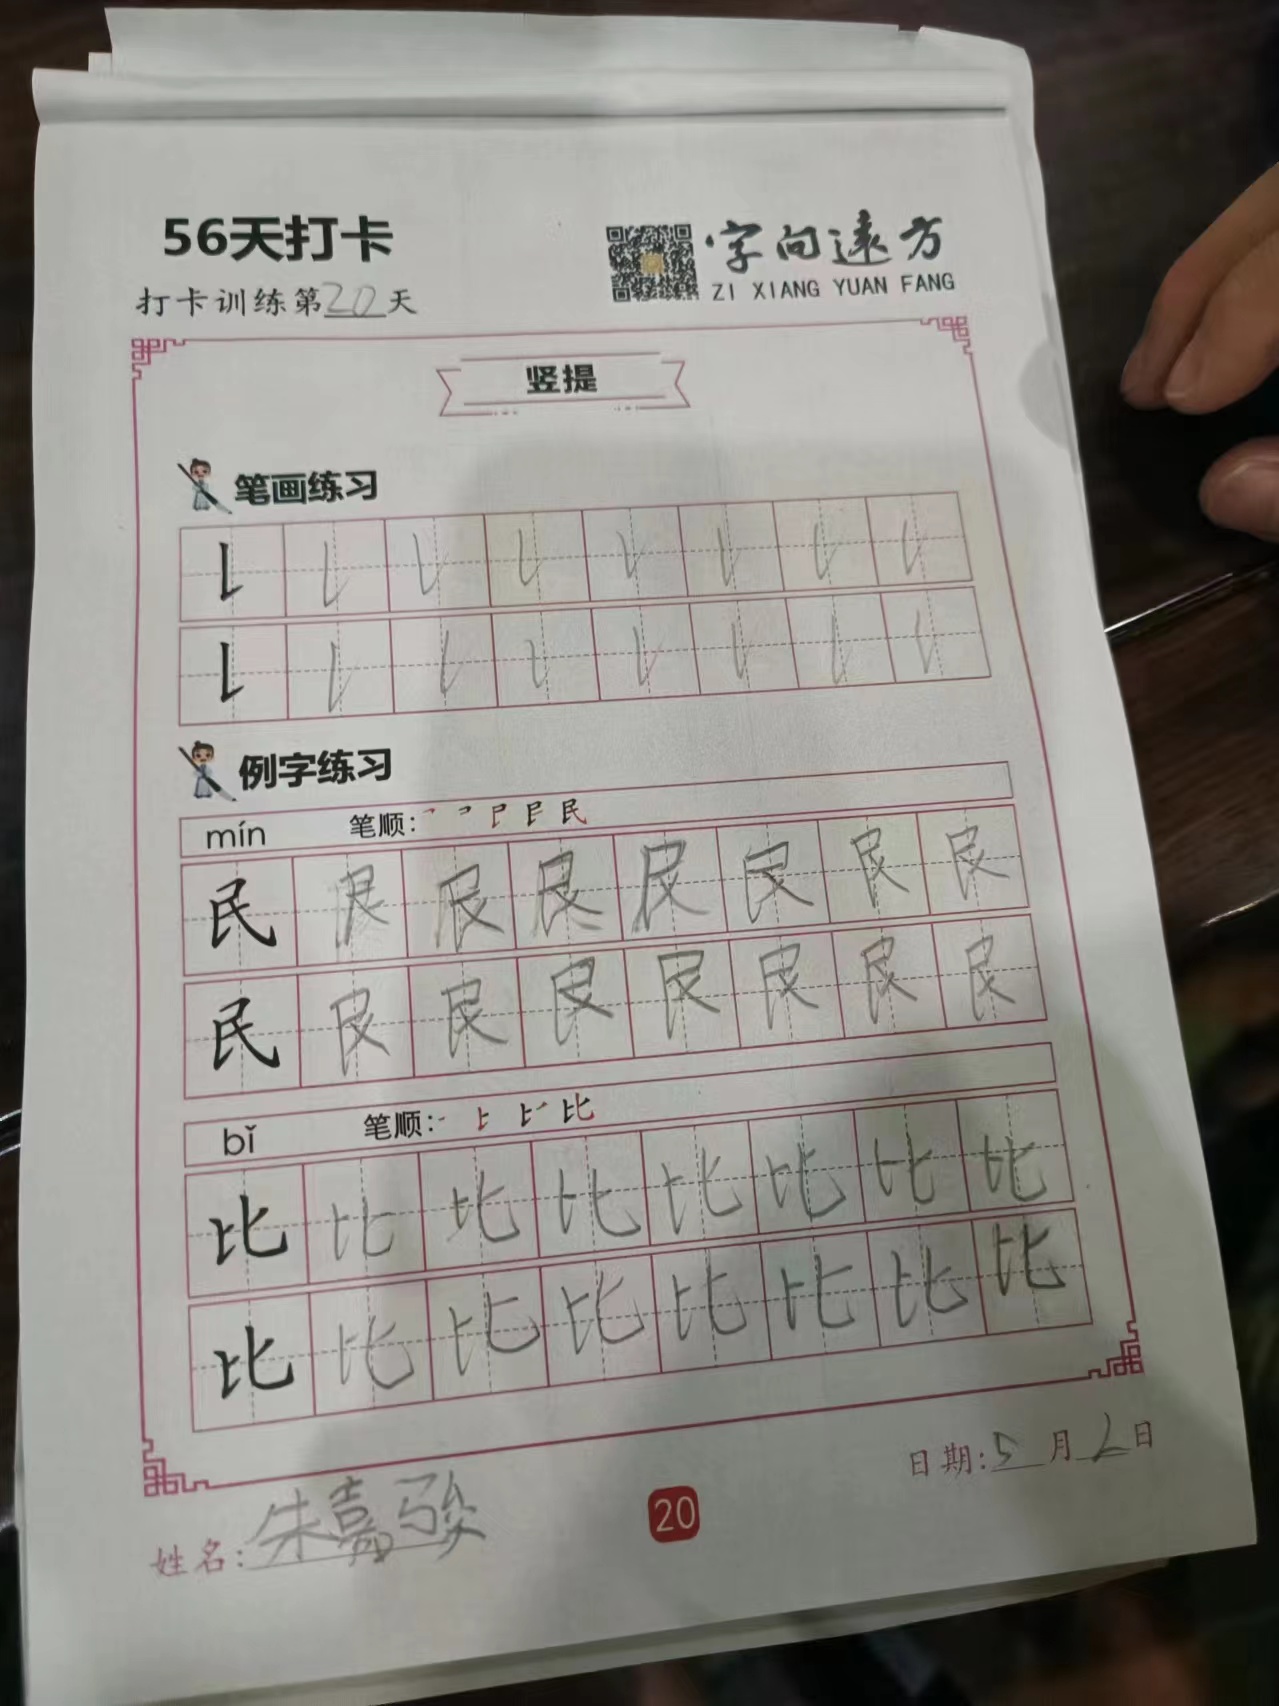 56天打卡
字向遠方
ZI XIANG YUAN FANG
打卡训练第20天
竖提
笔画练习
例字练习
mín 笔顺:
民 民 民 民 民 民 民 民
民 民 民 民 民 民 民 民
bǐ 笔顺:
比 比 比 比 比 比 比 比
比 比 比 比 比 比 比 比
日期:5月6日
姓名:朱嘉骏
20